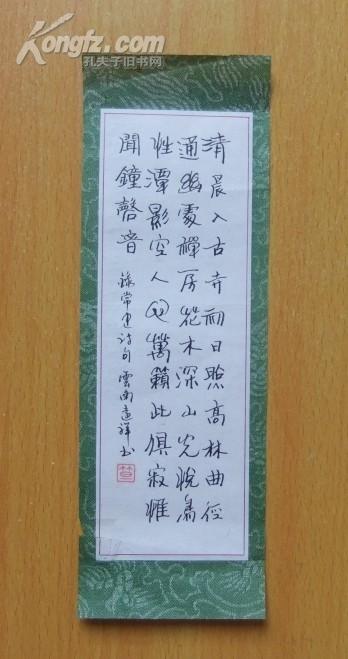 Kongfz.com
孔夫子旧书网
清晨入古寺初日照高林曲徑
通幽處禪房花木深山光悅鳥
性潭影空人心萬籟此俱寂惟
聞鐘磬音
錄常建詩句 雲南 祥書